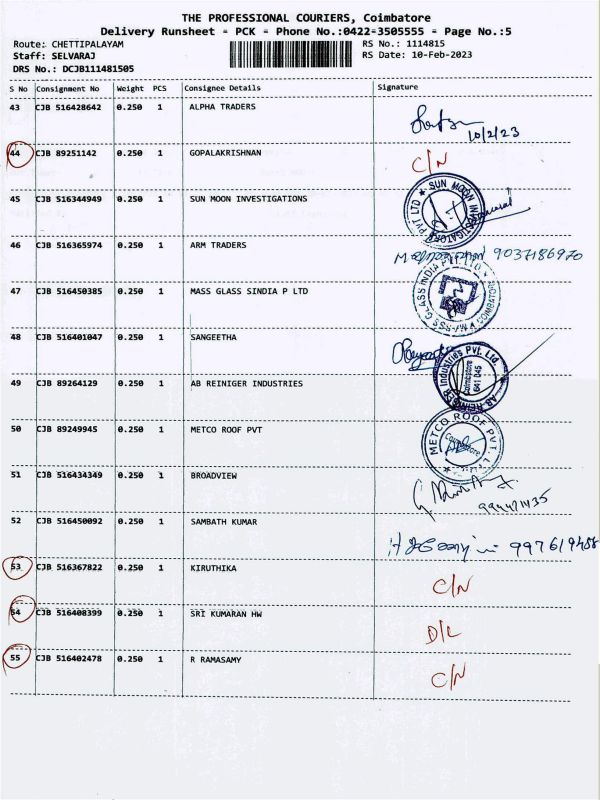 THE PROFESSIONAL COURIERS, Coimbatore
Delivery Runsheet = PCK = Phone No.:0422=3505555 = Page No.:5
Route: CHETTIPALAYAM RS No.: 1114815
Staff: SELVARAJ RS Date: 10-Feb-2023
DRS No.: DCJB111481505
S No Consignment No Weight PCS Consignee Details Signature
43 CJB 516428642 0.250 1 ALPHA TRADERS
10/2/23
44 CJB 89251142 0.250 1 GOPALAKRISHNAN C/N
45 CJB 516344949 0.250 1 SUN MOON INVESTIGATIONS
SUN MOON INVESTIGATORS PVT LTD
46 CJB 516365974 0.250 1 ARM TRADERS 9037186970
47 CJB 516450385 0.250 1 MASS GLASS SINDIA P LTD
GLASS INDIA PVT. LTD COIMBATORE
48 CJB 516401047 0.250 1 SANGEETHA
49 CJB 89264129 0.250 1 AB REINIGER INDUSTRIES
AB REINIGER Industries Pvt. Ltd. Coimbatore 641 045
50 CJB 89249945 0.250 1 METCO ROOF PVT
METCO ROOF PVT. L Coimbatore
51 CJB 516434349 0.250 1 BROADVIEW
52 CJB 516450092 0.250 1 SAMBATH KUMAR
53 CJB 516367822 0.250 1 KIRUTHIKA C/N
54 CJB 516408399 0.250 1 SRI KUMARAN HW D/L
55 CJB 516402478 0.250 1 R RAMASAMY C/N